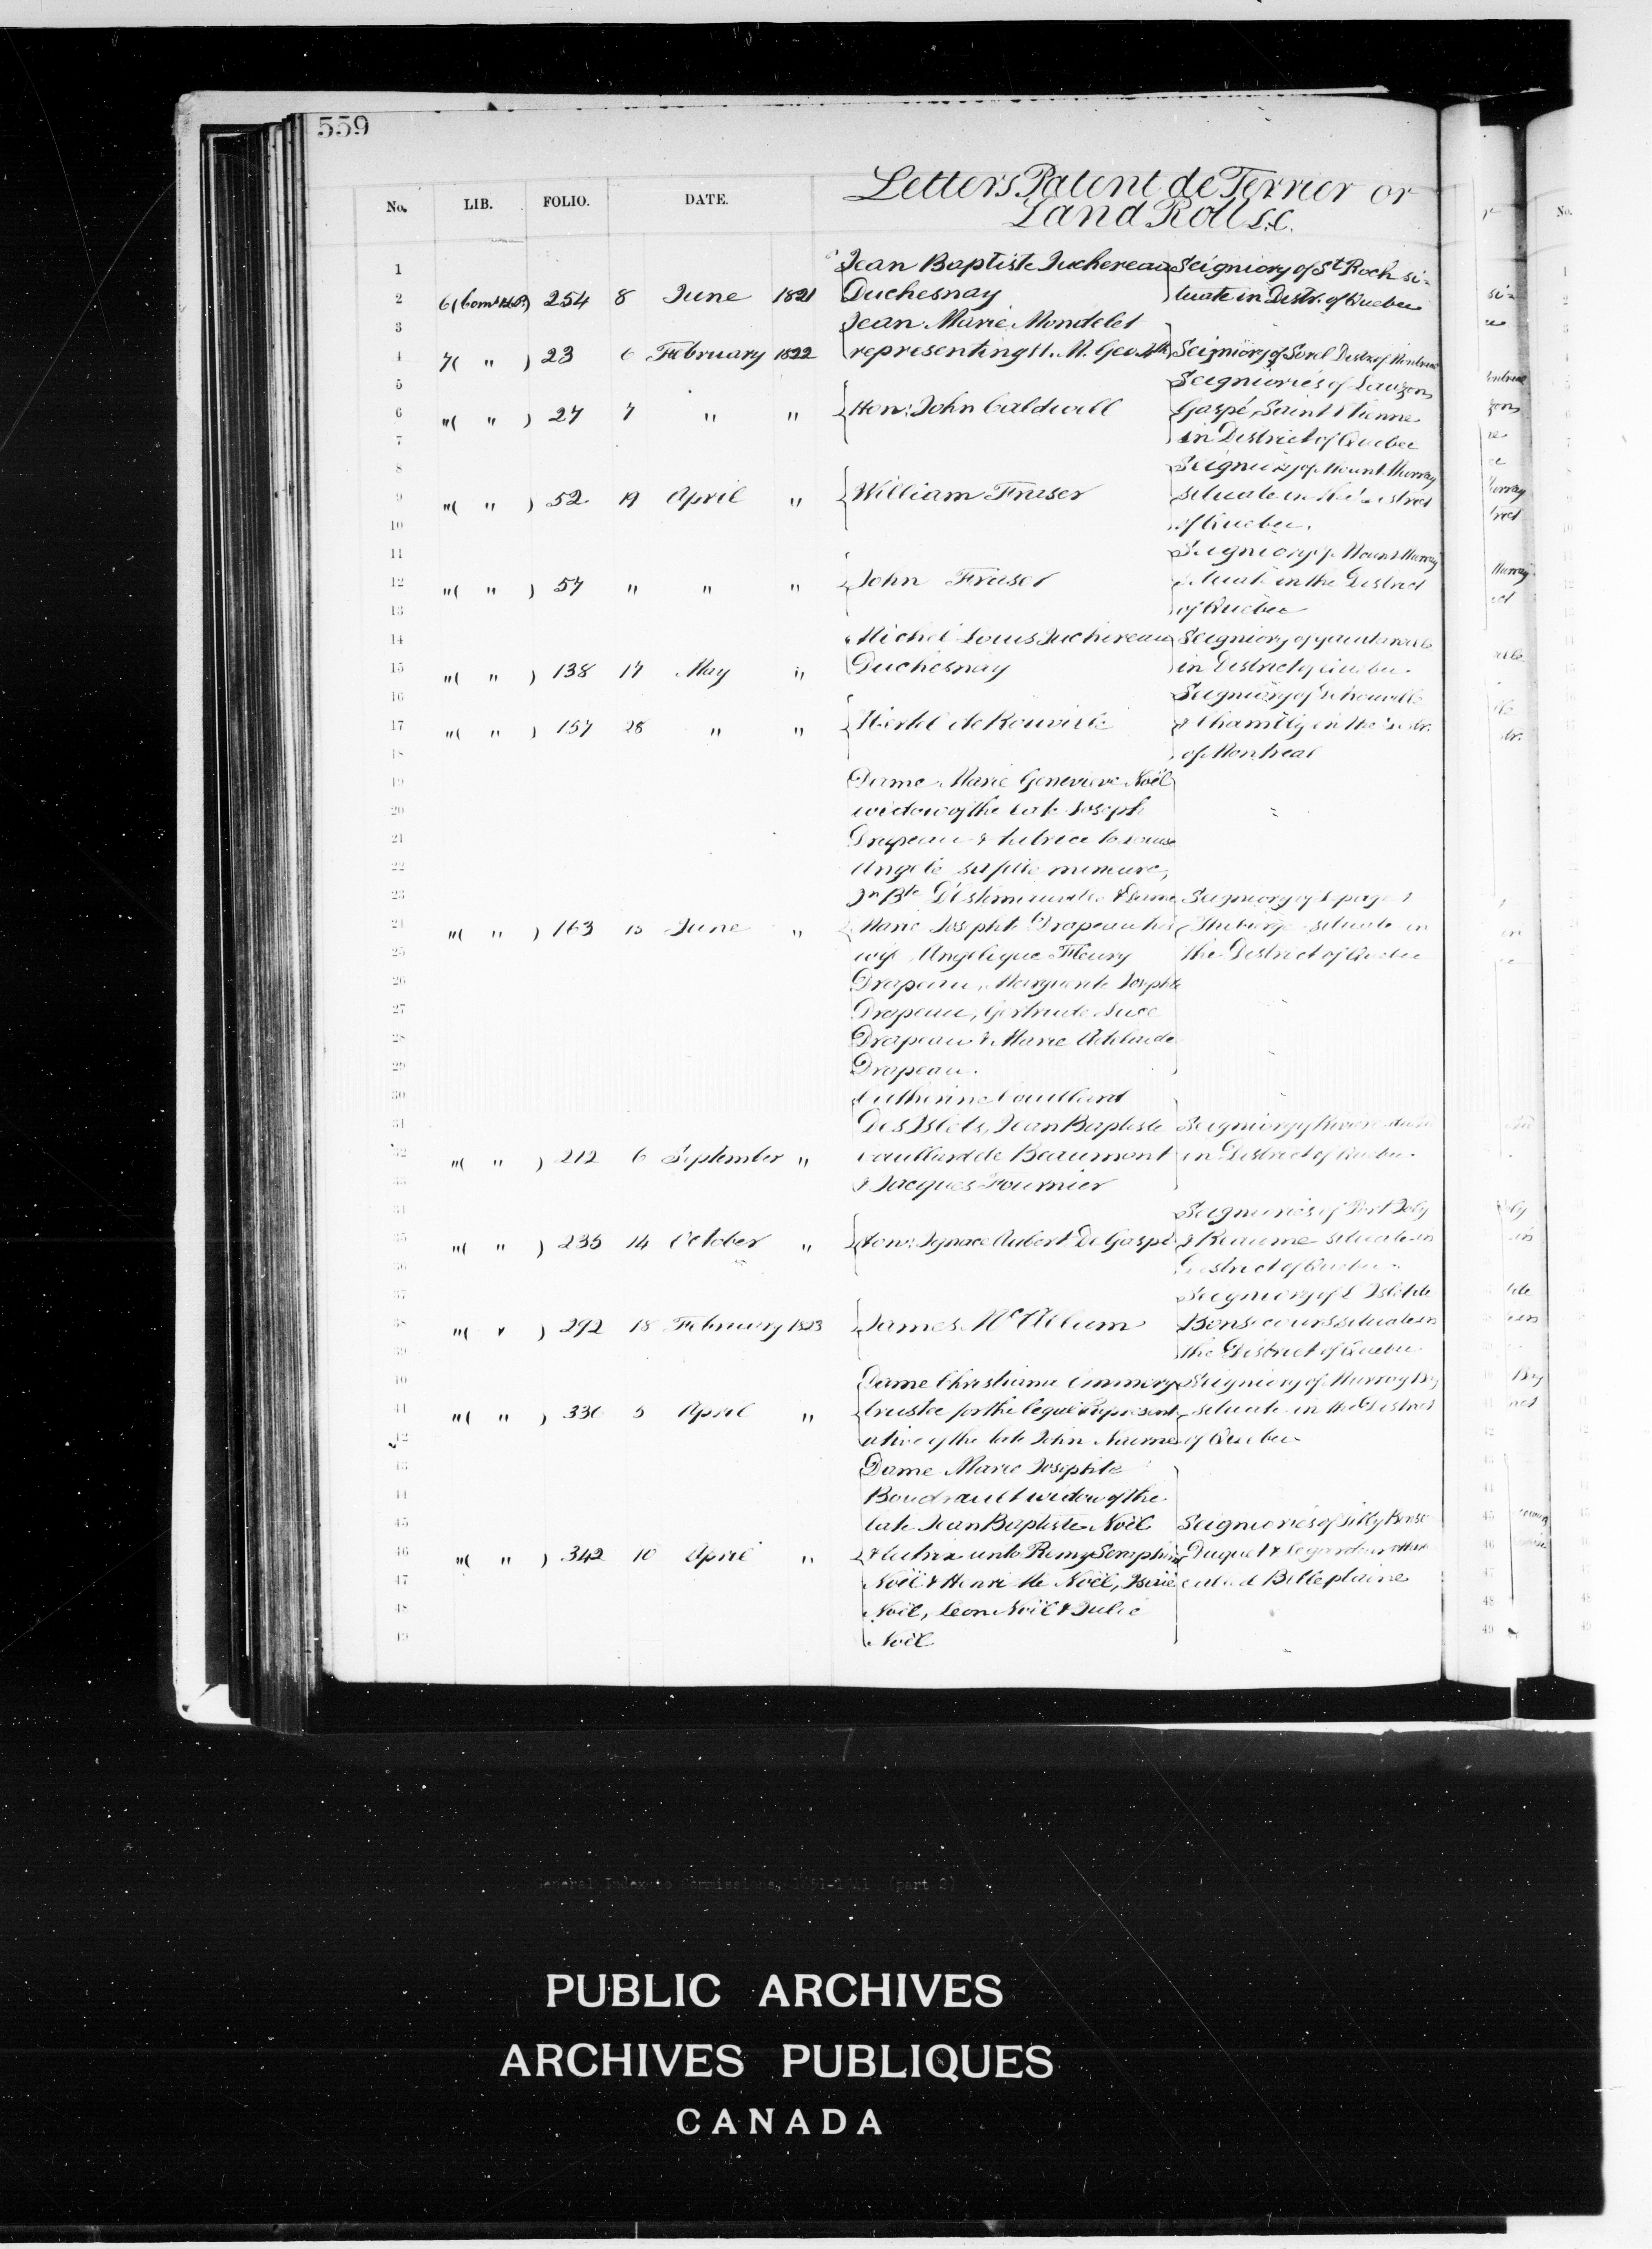 559
No. LIB. FOLIO. DATE. Letters Patent de Terrier or
Land Roll L.C.
1 Jean Baptiste Juchereau Seigniory of St Roch si-
2 6 254 8 June 1821 Duchesnay tuate in Distr. of Quebec
3 Jean Marie Mondelet
4 7( " ) 23 6 February 1822 representing H. M. Geo. 4th Seigniory of Sorel Distr. of Montreal
5 Seigniories of Lauzon
6 "( " ) 27 7 " " Hon: John Caldwell Gaspé, Saint Etienne
7 in District of Quebec
8 Seigniory of Mount Murray
9 "( " ) 52 19 April " William Fraser situate in the District
10 of Quebec.
11 Seigniory of Mount Murray
12 "( " ) 57 " " " John Fraser situate in the District
13 of Quebec
14 Michel Louis Juchereau Seigniory of
15 "( " ) 138 17 May " Duchesnay in District of Quebec
16 Seigniory of
17 "( " ) 157 28 " " Hertel de Rouville & Chambly in the Distr.
18 of Montreal
19 Dame Marie Genevieve Noël
20 widow of the late Joseph
21 Drapeau & tutrice to Louise
22 Angele sa fille mineure,
23 Jn Bte D'Estimauville & Dame Seigniory of Lepage &
24 "( " ) 163 15 June " Marie Josephte Drapeau his Thibierge situate in
25 wife Angelique Fleury the District of Quebec
26 Drapeau, Marguerite Josephte
27 Drapeau, Gertrude Luce
28 Drapeau & Marie Adelaide
29 Drapeau.
30 Catherine Couillard
31 Des Islets, Jean Baptiste Seigniory of Riviere du Sud
32 "( " ) 212 6 September " Couillard de Beaumont in District of Quebec
33 & Jacques Fournier
34 Seigniories of Port Joly
35 "( " ) 235 14 October " Hon: Ignace Aubert De Gaspé & Reaume situate in
36 District of Quebec
37 Seigniory of L'Islet de
38 "( " ) 292 18 February 1823 James McCallum Bonsecours situate in
39 the District of Quebec
40 Dame Christiana Emmery Seigniory of Murray Bay
41 "( " ) 336 5 April " trustee for the legal Represent- situate in the District
42 ative of the late John Nairne of Quebec
43 Dame Marie Josephte
44 Boudrault widow of the
45 late Jean Baptiste Noël Seigniories of Tilly Bonse
46 "( " ) 342 10 April " & tutrix unto Remy Seraphine Duquet &
47 Noël & Henriette Noël, called Belleplaine
48 Noël, Leon Noël & Julie
49 Noël
General Index to Commissions, 1651-1841 (part 2)
PUBLIC ARCHIVES
ARCHIVES PUBLIQUES
CANADA